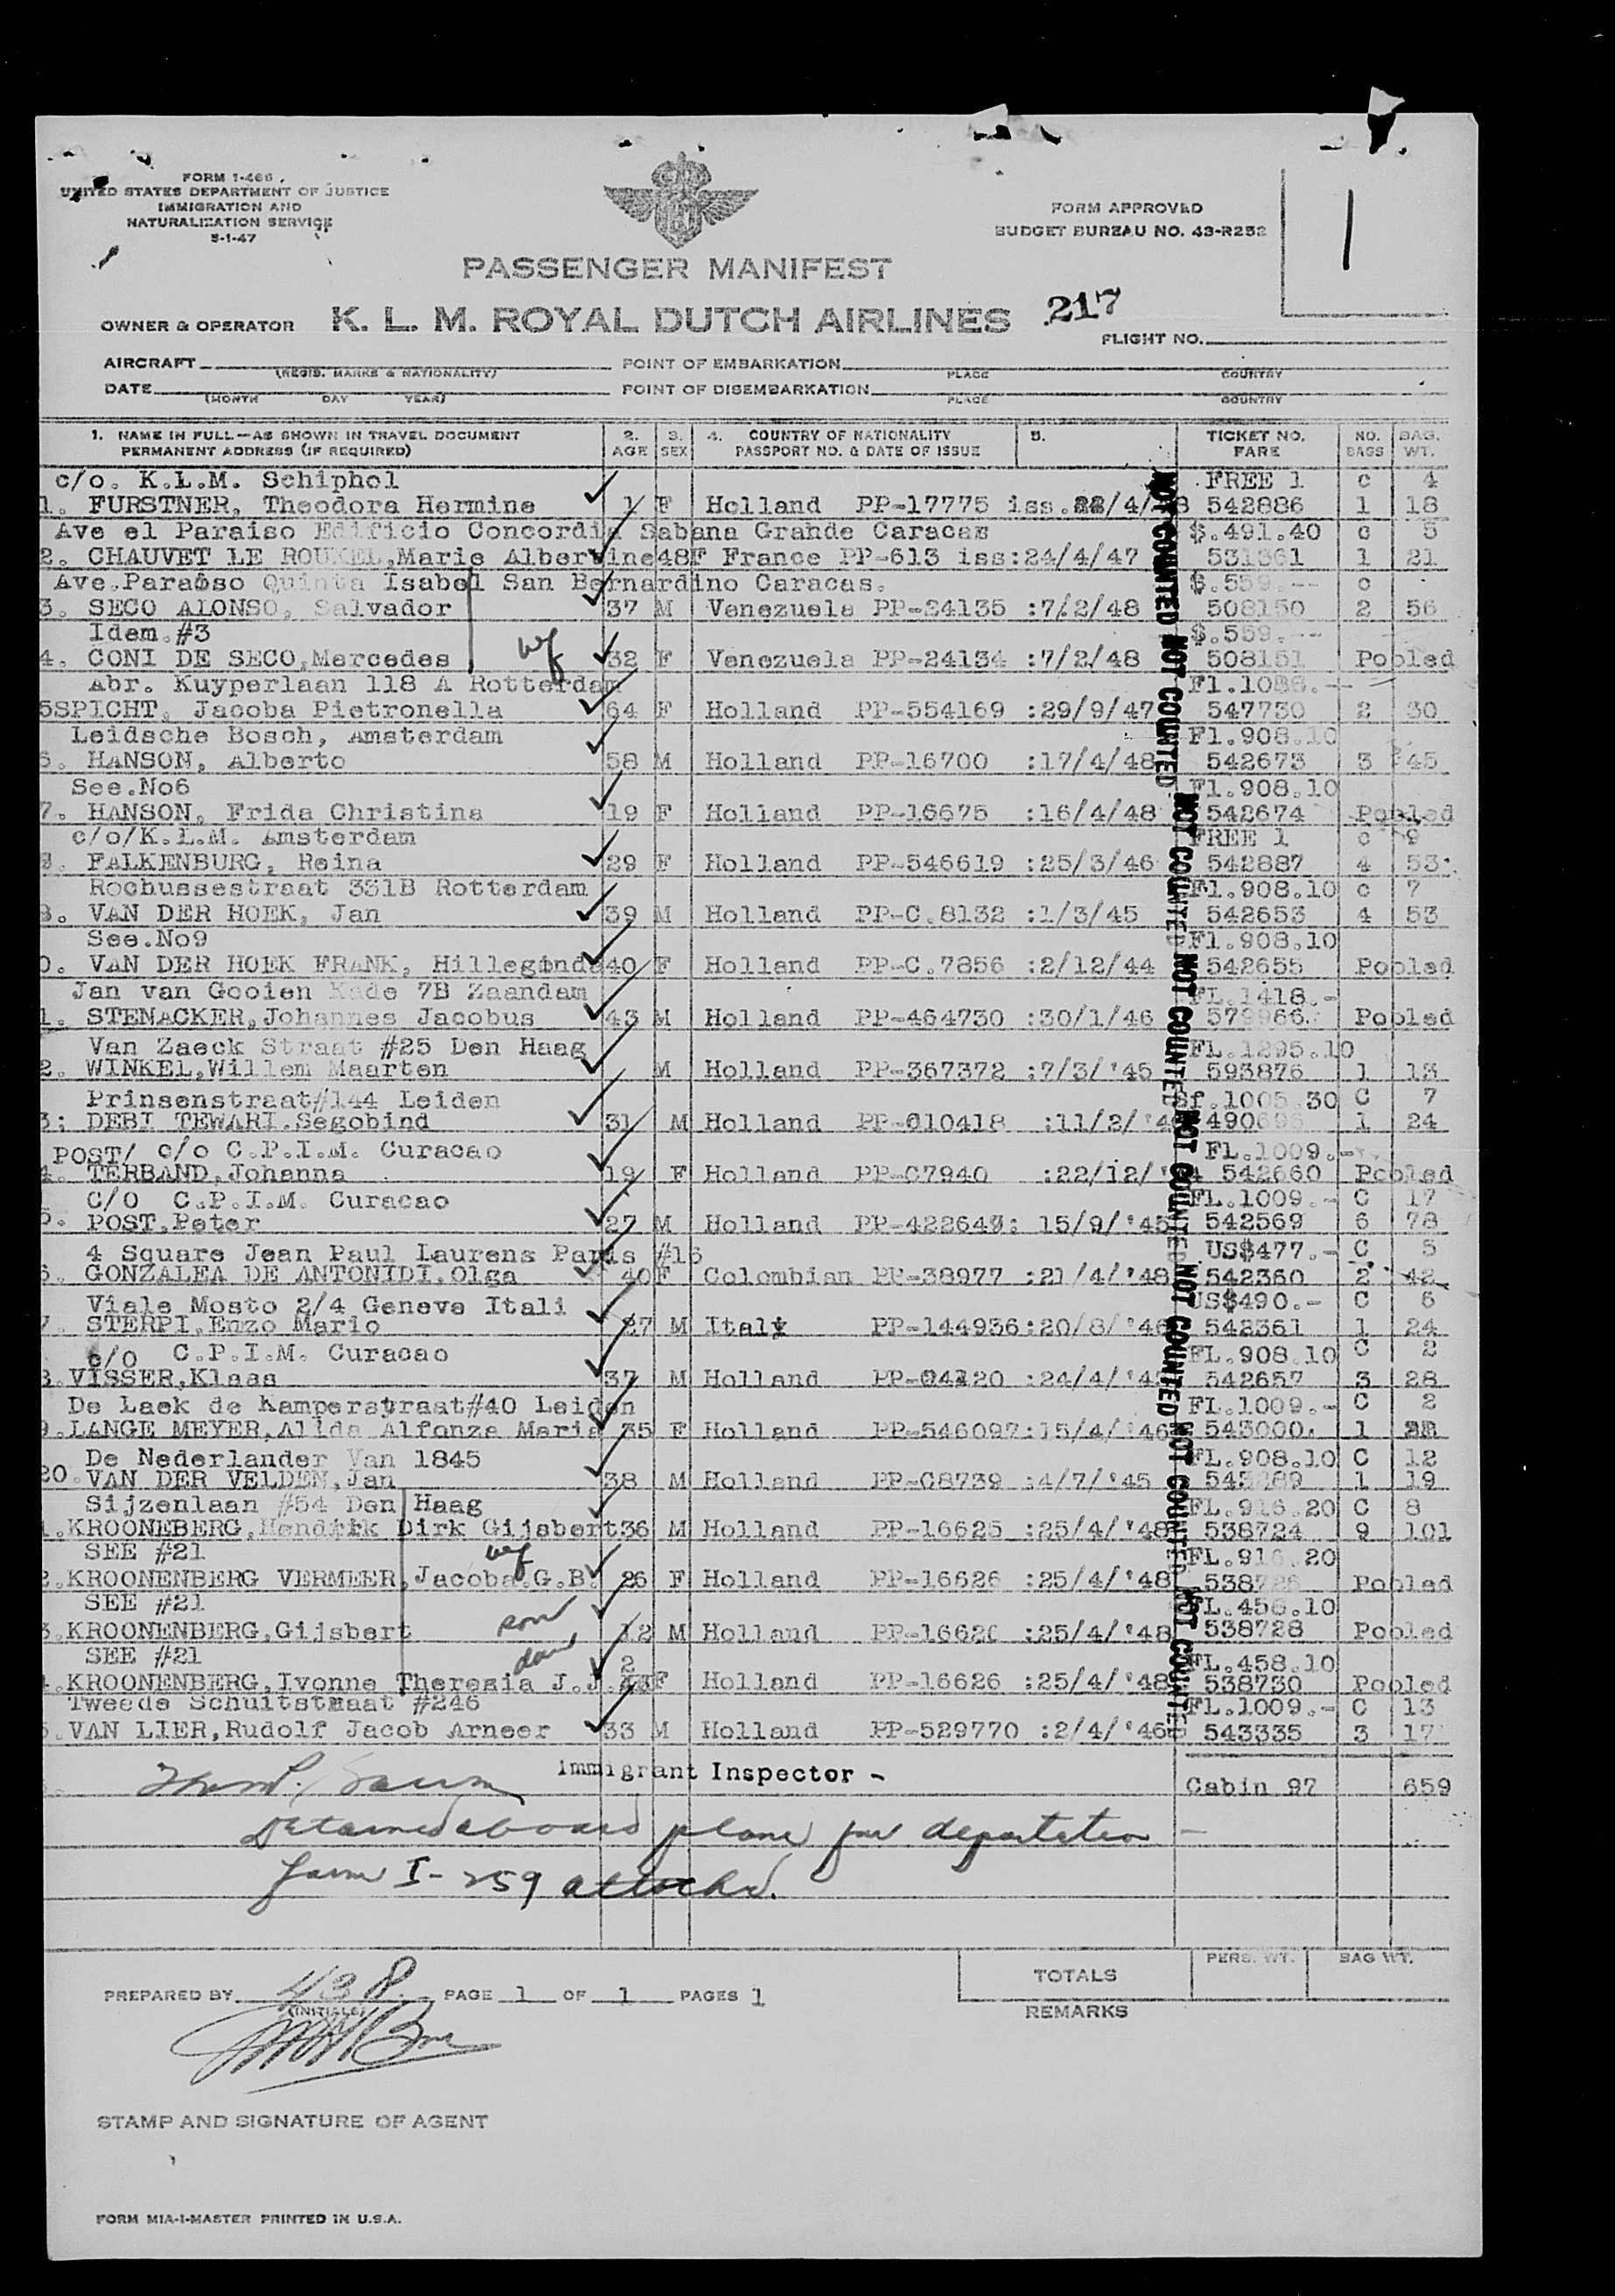 FORM I-466
UNITED STATES DEPARTMENT OF JUSTICE
IMMIGRATION AND
NATURALIZATION SERVICE
5-1-47
FORM APPROVED
BUDGET BUREAU NO. 43-R252
1
PASSENGER MANIFEST
OWNER & OPERATOR K. L. M. ROYAL DUTCH AIRLINES 217
FLIGHT NO.
AIRCRAFT POINT OF EMBARKATION
(REGIS. MARKS & NATIONALITY) PLACE COUNTRY
DATE POINT OF DISEMBARKATION
(MONTH DAY YEAR) PLACE COUNTRY
1. NAME IN FULL—AS SHOWN IN TRAVEL DOCUMENT 2. 3. 4. COUNTRY OF NATIONALITY 5. TICKET NO. NO. BAG.
PERMANENT ADDRESS (IF REQUIRED) AGE SEX PASSPORT NO. & DATE OF ISSUE FARE BAGS WT.
c/o. K.L.M. Schiphol FREE 1 c 4
1. FURSTNER, Theodora Hermine F Holland PP-17775 iss. 542886 1 18
Ave el Paraiso Edificio Concordia Sabana Grande Caracas $.491.40 c 5
2. CHAUVET LE ROUXEL,Marie Albertine48F France PP-613 iss:24/4/47 531361 1 21
Ave.Paraiso Quinta Isabel San Bernardino Caracas. $.559.-- c
3. SECO ALONSO, Salvador 37 M Venezuela PP-24135 :7/2/48 508150 2 56
Idem.#3 $.559.--
4. CONI DE SECO,Mercedes wf 32 F Venezuela PP-24134 :7/2/48 508151 Pooled
Abr. Kuyperlaan 118 A Rotterdam Fl.1088.--
5SPICHT, Jacoba Pietronella 64 F Holland PP-554169 :29/9/47 547730 2 30
Leidsche Bosch, Amsterdam Fl.908.10
6. HANSON, Alberto 58 M Holland PP-16700 :17/4/48 542673 3 45
See.No6 Fl.908.10
7. HANSON, Frida Christina 19 F Holland PP-16675 :16/4/48 542674 Pooled
c/o/K.L.M. Amsterdam FREE 1 c 9
FALKENBURG, Reina 29 F Holland PP-546619 :25/3/46 542887 4 53
Rochussestraat 331B Rotterdam Fl.908.10 c 7
VAN DER HOEK, Jan 39 M Holland PP-C.8132 :1/3/45 542653 4 53
See.No9 Fl.908.10
0. VAN DER HOEK FRANK, Hillegonda40 F Holland PP-C.7856 :2/12/44 542655 Pooled
Jan van Gooien Kade 7B Zaandam FL.1418.-
1. STENACKER,Johannes Jacobus 43 M Holland PP-464730 :30/1/46 Pooled
Van Zaeck Straat #25 Den Haag FL.1295.10
2. WINKEL,Willem Maarten M Holland PP-367372 :7/3/'45 593876 1 13
Prinsenstraat#144 Leiden Sf.1005.30 C 7
3: DEBI TEWARI.Segobind 31 M Holland PP-010418 :11/2/ 1 24
POST/ c/o C.P.I.M. Curacao FL.1009.-
4. TERBAND,Johanna 19 F Holland PP-C7940 :22/12/'4 542660 Pooled
C/O C.P.I.M. Curacao FL.1009.- C 17
5. POST,Peter 27 M Holland : 15/9/'45 542569 6 78
4 Square Jean Paul Laurens Paris #16 US$477.- C 5
6. GONZALEA DE ANTONIDI,Olga 40 F Colombian PP-38977 :21/4/'48 542360 2 42
Viale Mosto 2/4 Geneve Itali US$490.- C 6
7. STERPI,Enzo Mario 27 M Italy PP-144936:20/8/'46 542361 1 24
c/o C.P.I.M. Curacao FL.908.10 C 2
8.VISSER,Klaas 37 M Holland :24/4/ 542657 3 28
De Laek de Kamperstraat#40 Leiden FL.1009.- C 2
9.LANGE MEYER,Alida Alfonza Maria 35 F Holland PP-546097:15/4/'46 543000. 1
De Nederlander Van 1845 FL.908.10 C 12
20.VAN DER VELDEN,Jan 38 M Holland PP-C8739 :4/7/'45 1 19
Sijzenlaan #54 Den Haag FL.916.20 C 8
1.KROONEBERG,Hendrik Dirk Gijsbert36 M Holland PP-16625 :25/4/'48 538724 9 101
SEE #21 wf FL.916.20
2.KROONENBERG VERMEER,Jacoba.G.B. 26 F Holland PP-16626 :25/4/'48 Pooled
SEE #21 FL.456.10
3.KROONENBERG,Gijsbert son 12 M Holland PP-16626 :25/4/'48 538728 Pooled
SEE #21 dau 2 FL.458.10
4.KROONENBERG,Ivonne Theresia J.J. F Holland PP-16626 :25/4/'48 538730 Pooled
Tweede Schuitstraat #246 FL.1009.- C 13
5.VAN LIER,Rudolf Jacob Arneer 33 M Holland PP-529770 :2/4/'46 543335 3 17
NOT COUNTED NOT COUNTED NOT COUNTED NOT COUNTED NOT COUNTED NOT COUNTED NOT COUNTED NOT COUNTED
Immigrant Inspector -
Cabin 97 659
Detained aboard plane for deportation -
form I-259 attached.
TOTALS PERS. WT. BAG WT.
PREPARED BY 438 PAGE 1 OF 1 PAGES 1
(INITIALS)
REMARKS
STAMP AND SIGNATURE OF AGENT
FORM MIA-I-MASTER PRINTED IN U.S.A.